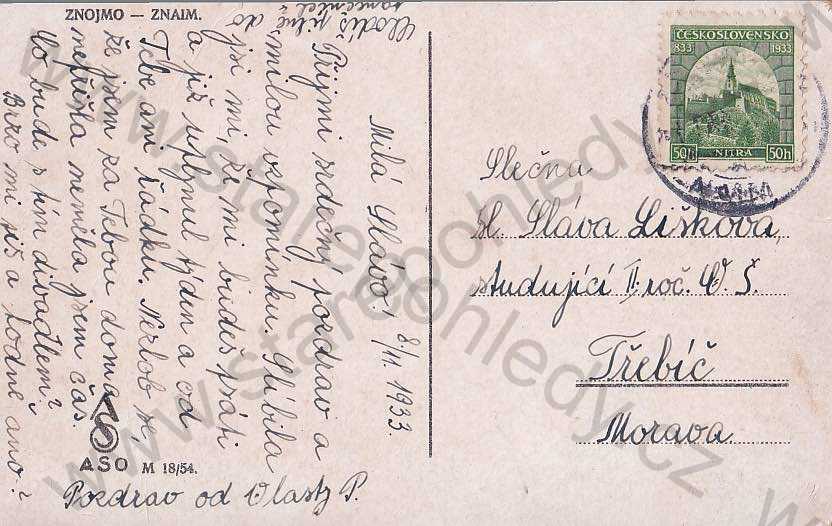 ZNOJMO — ZNAIM.
Milá Slávo!
8/11. 1933.
Přijmi srdečný pozdrav a
milou vzpomínku. Slíbila
jsi mi, že mi budeš psáti
a již uplynul týden a od
Tebe ani řádku. Nezlob se,
že jsem za Tebou doma
nepřišla neměla jsem čas.
Co bude s tím divadlem?
Brzo mi piš a hodně ano?
Chodíš pilně do
Pozdrav od Vlasty P.
ASO M 18/54.
ČESKOSLOVENSKO
833 1933
NITRA
50h 50h
Slečna
Sl. Sláva Lišková,
studující II. roč. O. Š.
Třebíč
Morava.
www.starepohledy.cz
www.starepohledy.cz